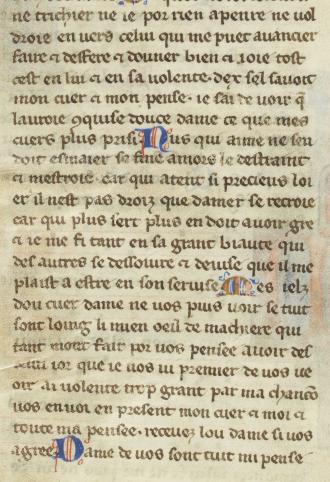 ne trichier ne ie por rien apenre ne vol
droie en uers celui qui me puet auancier
faire & desfere & douner bien & ioie tost
cest en lui & en sa volente. dex sel sauoit
mon cuer & mon pense. ie sai de uoir q̃
lauroie 9quise douce dame ce que mes
cuers plus prisi Nus qui aime ne seu
doit esmaier se fine amors le destraint
& mestroie. car qui atent si precieus loi
er il nest pas droiz que damer se recroie
car qui plus sert plus en doit auoir gre
& ie me fi tant en sa grant biaute qui
des autres se dessoiure & deuise que il me
plaist a estre en son seruise Mes ielz
dou cuer dame ne uos puis ueoir se tuit
sont loing li mien oeil de maniere qui
tant mont fait por uos pensee auoir des
ior que ie uos ui premier de uos ue
oir ai uolente trop grant par ma chancõ
uos en uoi en present mon cuer & moi &
toute ma pensee. receuez lou dame si uos
agree Dame de uos sont tuit mi pense